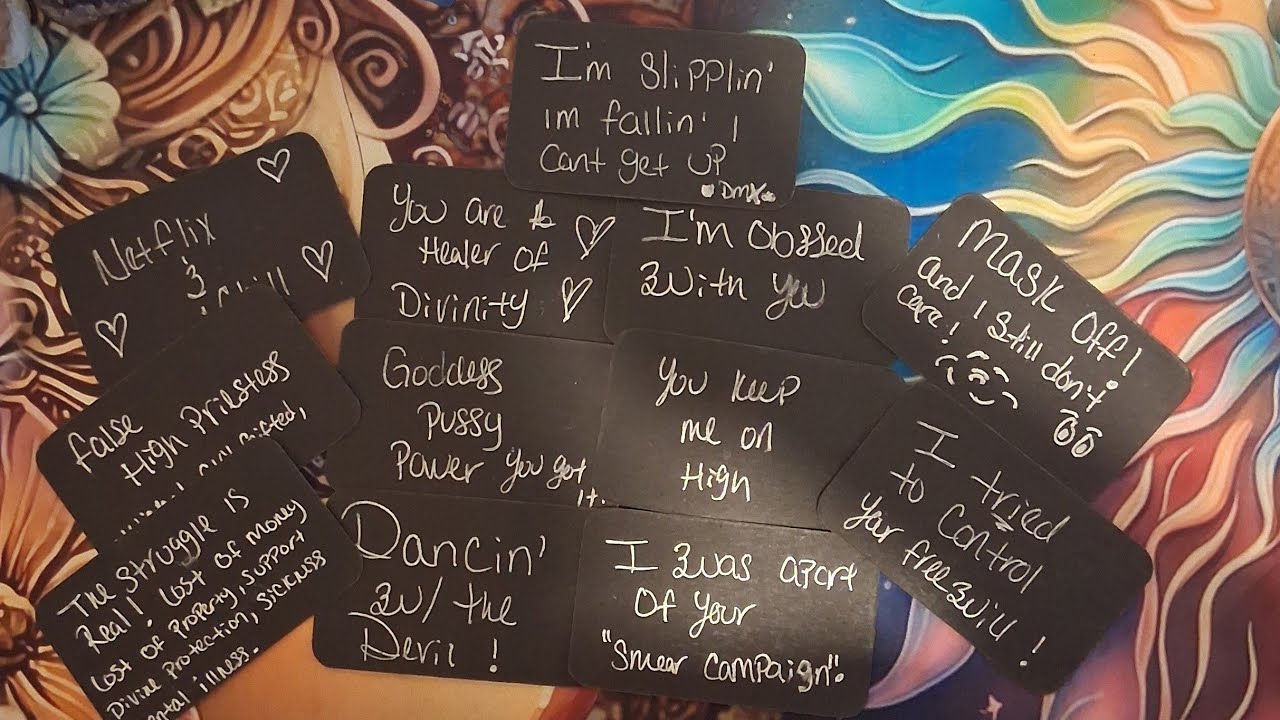 I'm Slipplin'
im fallin' I
Cant get up
DMX
Netflix
&
You are
Healer Of
Divinity
I'm Obssed
With you
Mask Off!
and I Still don't
care!
False
High Priestess
Goddess
Pussy
Power you got
it.
You keep
me on
High
I tried
to Control
your free Will!
The Struggle is
Real! Lost of money
Lost of Property, Support
Divine Protection, Sickness
illness.
Dancin'
W/ the
Devil!
I Was apart
Of your
"Smear Campaign".